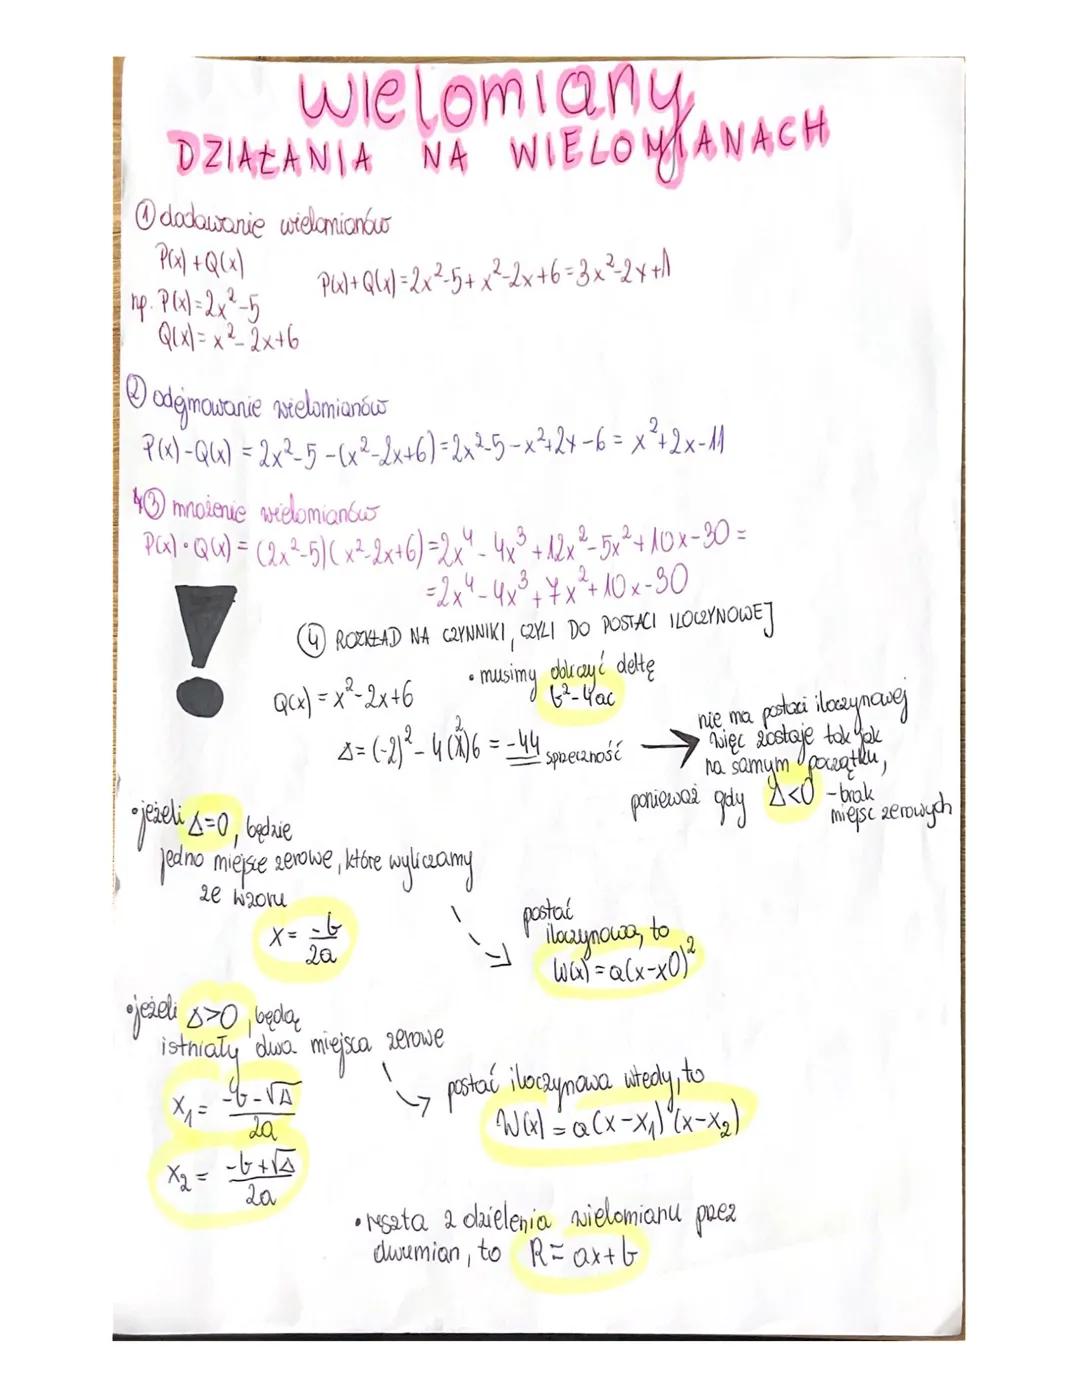 wielomiany
DZIAŁANIA NA WIELOMIANACH
① dodawanie wielomianów
P(x)+Q(x)
np. P(x)=2x²-5
Q(x)=x²-2x+6
P(x)+Q(x)=2x²-5+x²-2x+6=3x²-2x+1
② odejmowanie wielomianów
P(x)-Q(x)=2x²-5-(x²-2x+6)=2x²-5-x²+2x-6=x²+2x-11
③ mnożenie wielomianów
P(x)·Q(x)=(2x²-5)(x²-2x+6)=2x⁴-4x³+12x²-5x²+10x-30=
=2x⁴-4x³+7x²+10x-30
④ ROZKŁAD NA CZYNNIKI, CZYLI DO POSTACI ILOCZYNOWEJ
• musimy obliczyć deltę
b²-4ac
Q(x)=x²-2x+6
Δ=(-2)²-4·6=-44 sprzeczność →
nie ma postaci iloczynowej
więc zostaje tak jak
na samym początku,
ponieważ gdy Δ<0 - brak
miejsc zerowych
• jeżeli Δ=0, będzie
jedno miejsce zerowe, które wyliczamy
ze wzoru
x=-b/2a
postać
iloczynowa, to
W(x)=a(x-x0)²
• jeżeli Δ>0, będą
istniały dwa miejsca zerowe
x₁=-b-√Δ/2a
x₂=-b+√Δ/2a
postać iloczynowa wtedy, to
W(x)=a(x-x₁)(x-x₂)
• reszta z dzielenia wielomianu przez
dwumian, to R=ax+b